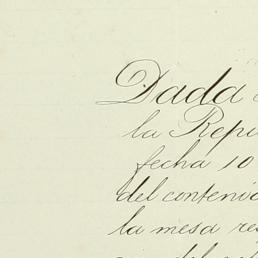 Dada
la Repú
fecha 10
del contenid
la mesa re